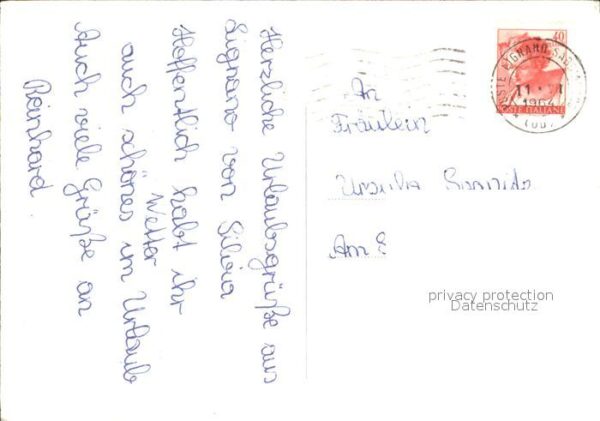 Herzliche Urlaubsgrüße aus
Lignano von Silvia
Hoffentlich habt ihr
auch schönes
Wetter
im Urlaub
Auch viele Grüße an
Reinhard.
An
Fräulein
Am
40
POSTE ITALIANE
LIGNANO
11
privacy protection
Datenschutz